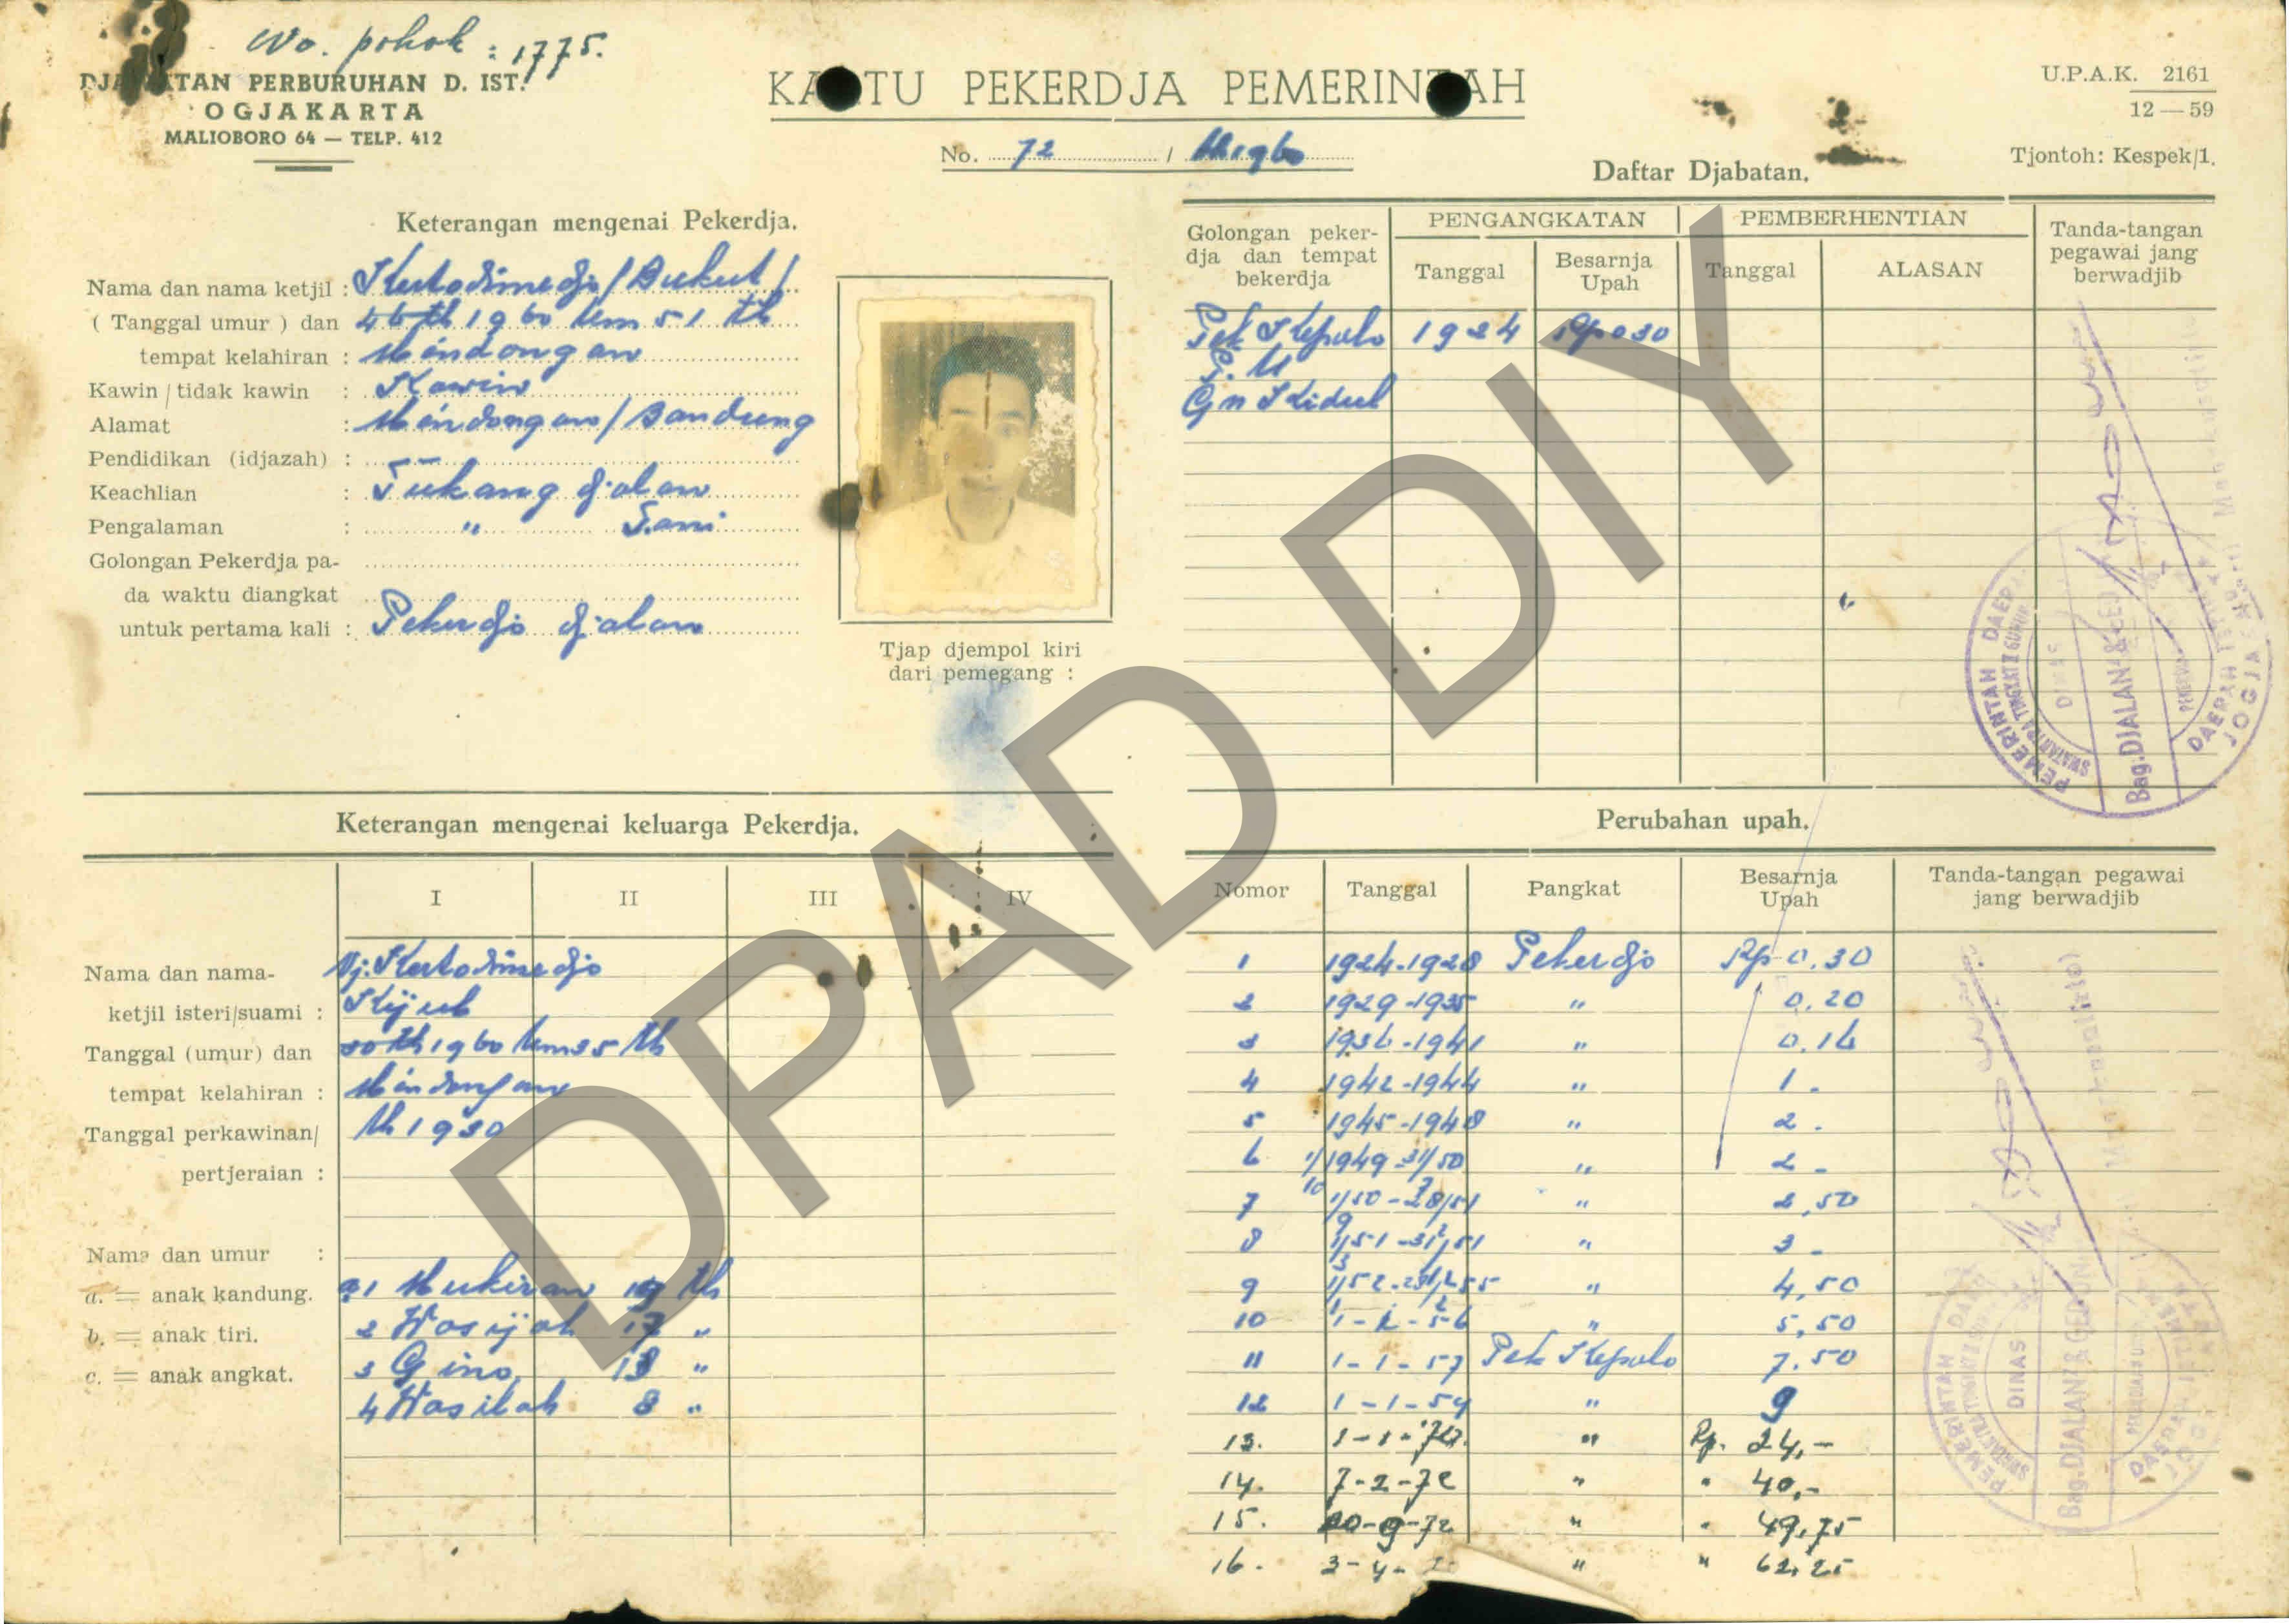 No. pokok : 1775.
DJAWATAN PERBURUHAN D. IST.
OGJAKARTA
MALIOBORO 64 — TELP. 412
KARTU PEKERDJA PEMERINTAH
No. 72 /
U.P.A.K. 2161
12 — 59
Tjontoh: Kespek/1.
Keterangan mengenai Pekerdja.
Nama dan nama ketjil : Kertodimedjo / Bukut /
( Tanggal umur ) dan 46 th 1960 um 51 th
tempat kelahiran : Mendongan
Kawin / tidak kawin : Kawin
Alamat : Mendongan / Bandung
Pendidikan (idjazah) : —
Keachlian : Tukang djalan
Pengalaman : " Sami
Golongan Pekerdja pa-
da waktu diangkat
untuk pertama kali : Pekerdjo djalan
Tjap djempol kiri
dari pemegang :
Daftar Djabatan.
Golongan peker-
dja dan tempat
bekerdja
PENGANGKATAN
Tanggal
Besarnja
Upah
PEMBERHENTIAN
Tanggal
ALASAN
Tanda-tangan
pegawai jang
berwadjib
Pek Kepolo 1924 Rp 030
P.U
Gn Kidul
PEMERINTAH DAERAH
SWATANTRA TINGKAT II GUNUNG
DINAS
Bag. DJALAN & GED
DAERAH ISTIMEWA
JOGJAKARTA
Keterangan mengenai keluarga Pekerdja.
I II III IV
Nama dan nama- Nj. Kertodimedjo
ketjil isteri/suami : Kijub
Tanggal (umur) dan 30 th 1960 um 35 th
tempat kelahiran : Mendongan
Tanggal perkawinan/ th 1930
pertjeraian :
Nama dan umur :
a. = anak kandung. a1 Mukiran 19 th
b. = anak tiri. 2 Wasijah 17 "
c. = anak angkat. 3 Gino 13 "
4 Wasilah 8 "
Perubahan upah.
Nomor Tanggal Pangkat Besarnja Upah Tanda-tangan pegawai jang berwadjib
1 1924-1928 Pekerdjo Rp 0.30
2 1929-1935 " 0.20
3 1936-1941 " 0.16
4 1942-1944 " 1 -
5 1945-1948 " 2 -
6 1/10 1949-31/7 50 " 2 -
7 1/9 50-28/2 51 " 2,50
8 1/3 51-31/ 51 " 3 -
9 1/1 52- 55 " 4,50
10 1-1-56 " 5,50
11 1-1-57 Pek Kepolo 7.50
12 1-1-59 " 9
13. 1-1- " Rp. 24,-
14. 7-2-72 " " 40,-
15. -9-72 " " 49,75
16. 3-4- " " 62,25
PEMERINTAH DAERAH
SWATANTRA TINGKAT II
DINAS
Bag. DJALAN2 & GEDUNG
DAERAH ISTIMEWA
JOGJAKARTA
DPAD DIY